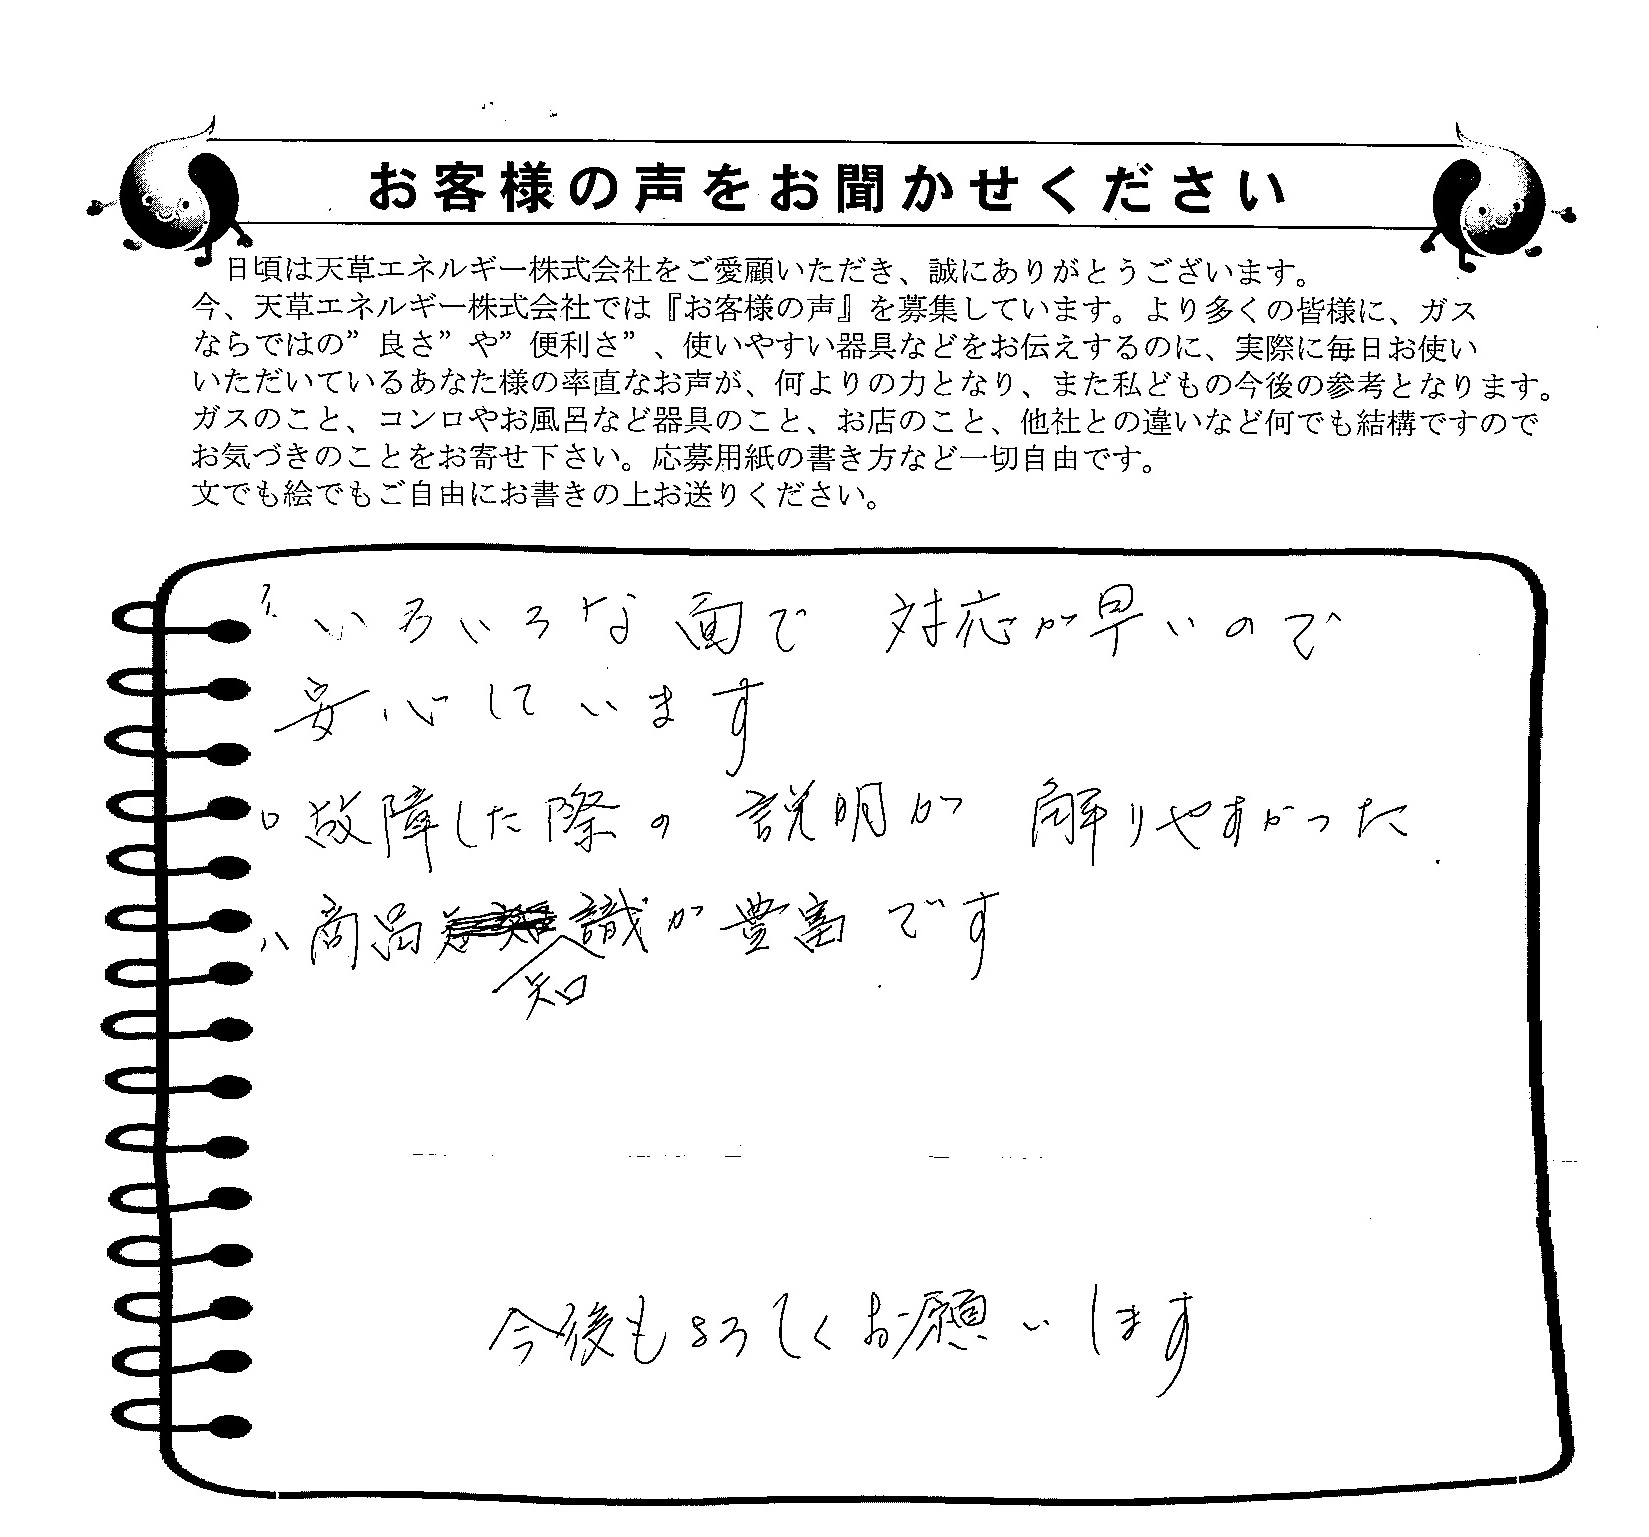 お客様の声をお聞かせください
日頃は天草エネルギー株式会社をご愛顧いただき、誠にありがとうございます。
今、天草エネルギー株式会社では『お客様の声』を募集しています。より多くの皆様に、ガス
ならではの”良さ”や”便利さ”、使いやすい器具などをお伝えするのに、実際に毎日お使い
いただいているあなた様の率直なお声が、何よりの力となり、また私どもの今後の参考となります。
ガスのこと、コンロやお風呂など器具のこと、お店のこと、他社との違いなど何でも結構ですので
お気づきのことをお寄せ下さい。応募用紙の書き方など一切自由です。
文でも絵でもご自由にお書きの上お送りください。
イ いろいろな面で 対応が早いので
安心しています
ロ 故障した際の 説明が 解りやすかった
ハ 商品知識が豊富です
今後もよろしくお願いします